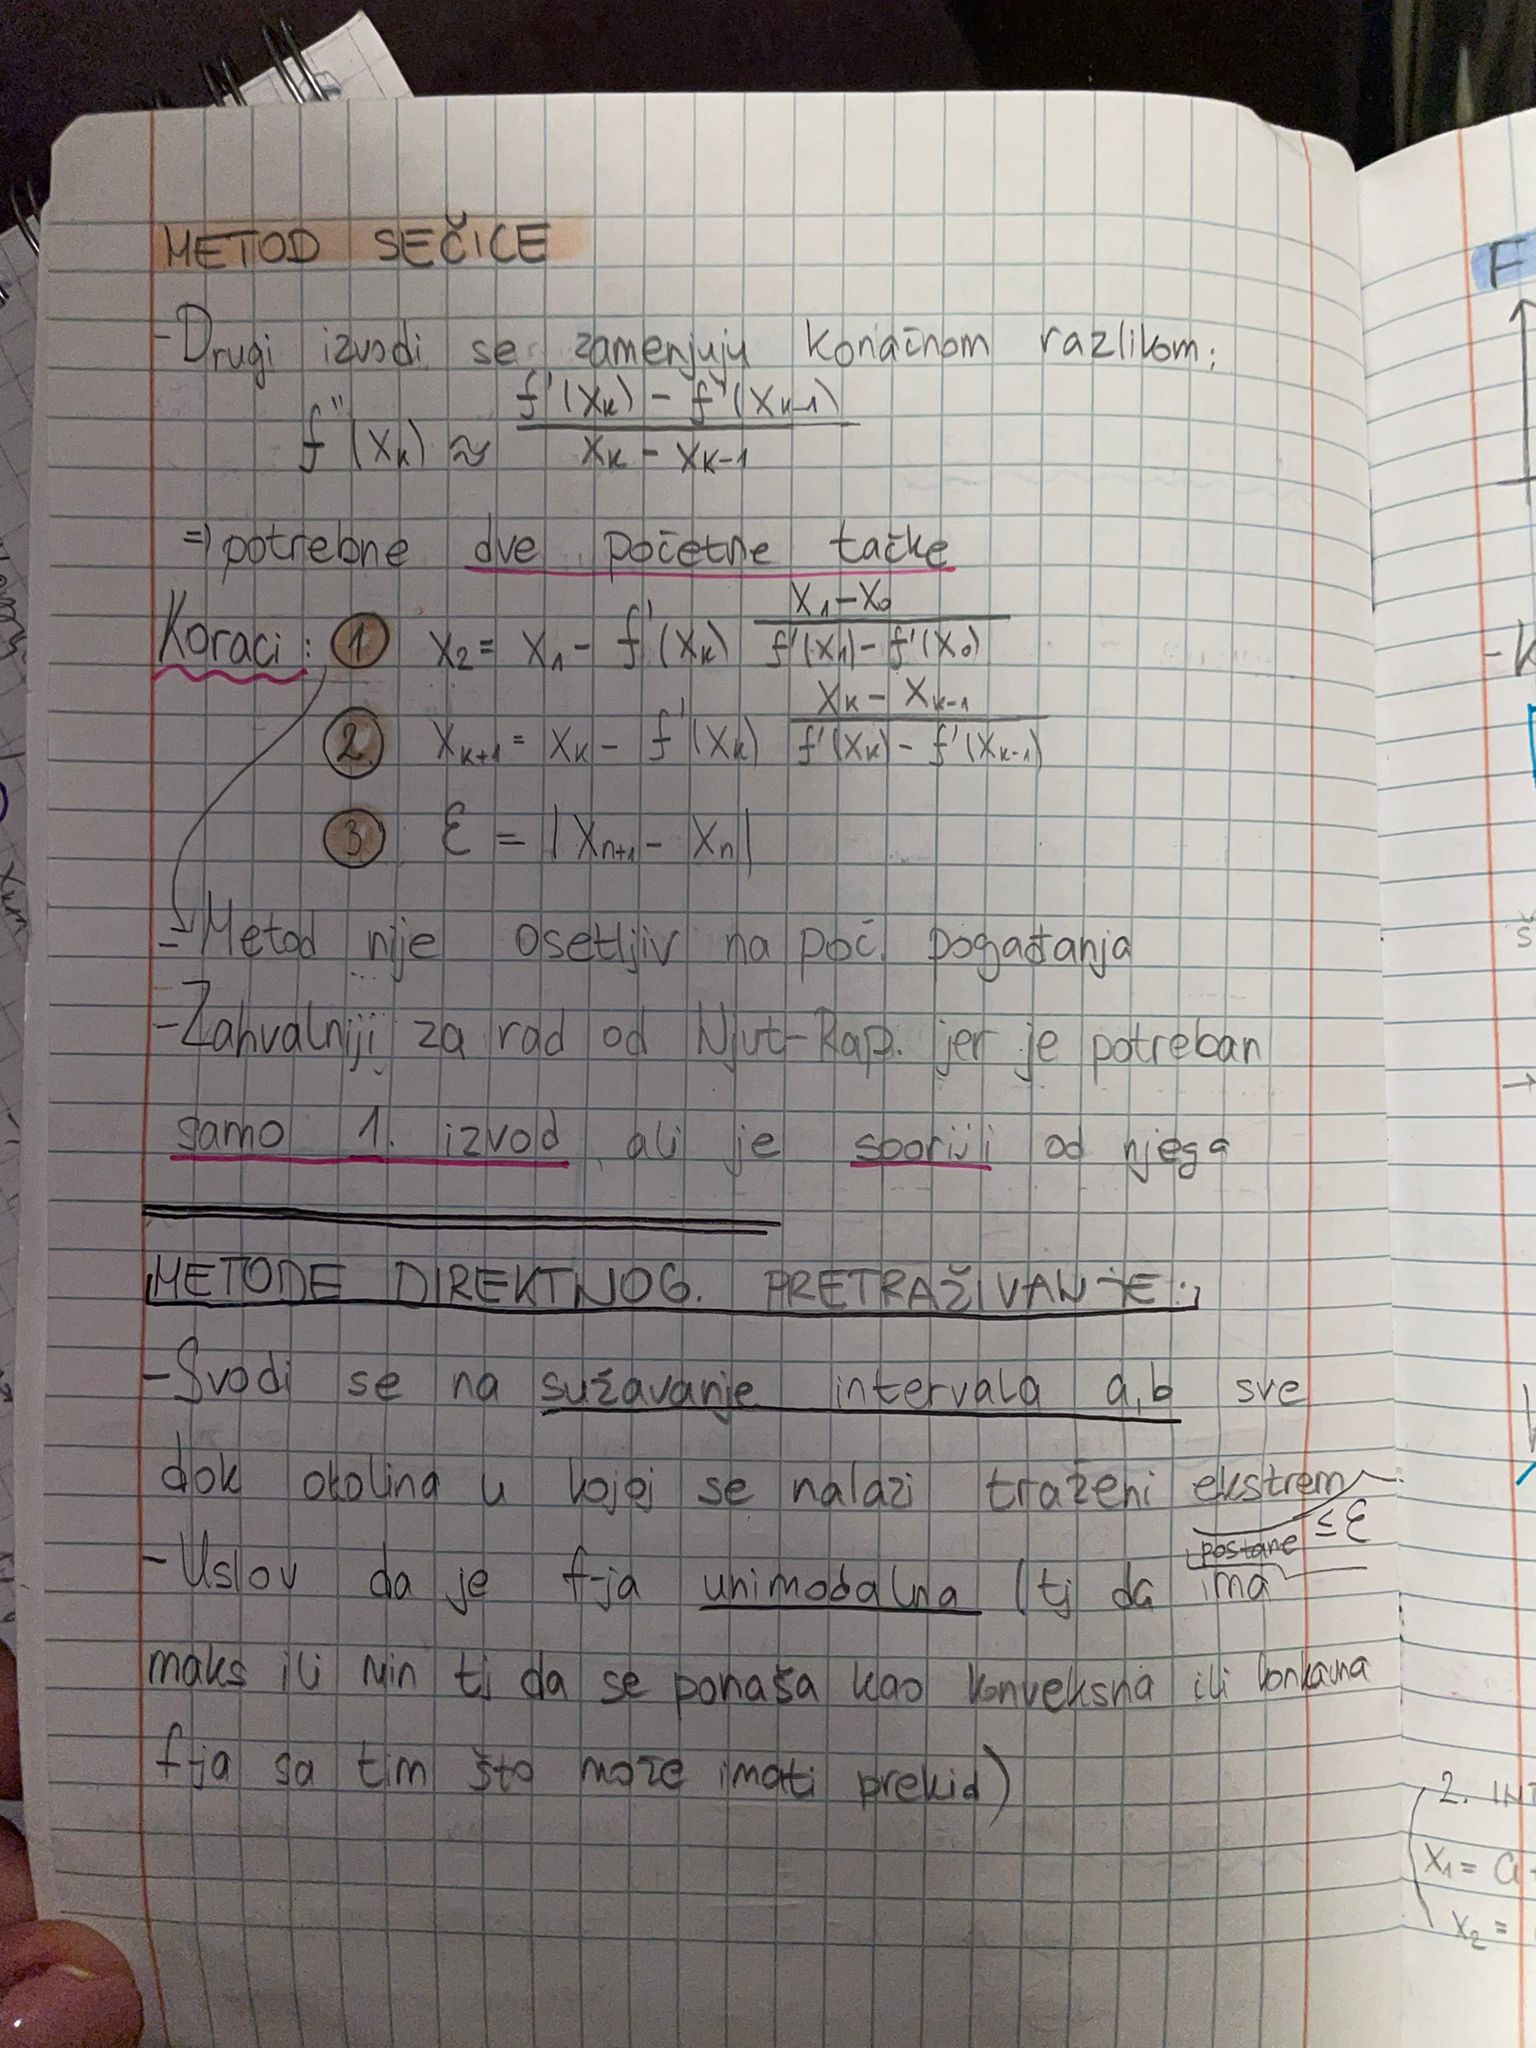 METOD SEČICE
- Drugi izvodi se zamenjuju konačnom razlikom:
f''(xₖ) ≈ (f'(xₖ) - f'(xₖ₋₁)) / (xₖ - xₖ₋₁)
⇒ potrebne dve početne tačke
Koraci: ① x₂ = x₁ - f'(xₖ) (x₁ - x₀) / (f'(x₁) - f'(x₀))
② xₖ₊₁ = xₖ - f'(xₖ) (xₖ - xₖ₋₁) / (f'(xₖ) - f'(xₖ₋₁))
③ ε = |xₙ₊₁ - xₙ|
- Metod nije osetljiv na poč. pogađanja
- Zahvalniji za rad od Njut-Rap. jer je potreban
samo 1. izvod ali je sporiji od njega
METODE DIREKTNOG PRETRAŽIVANJE:
- Svodi se na sužavanje intervala a,b sve
dok okolina u kojoj se nalazi traženi ekstrem
postane ≤ ε
- Uslov da je f-ja unimodalna (tj da ima
maks ili min tj da se ponaša kao konveksna ili konkavna
f-ja sa tim što može imati prekid)
F
- K
š
→
2. INT
x₁ = a +
x₂ =